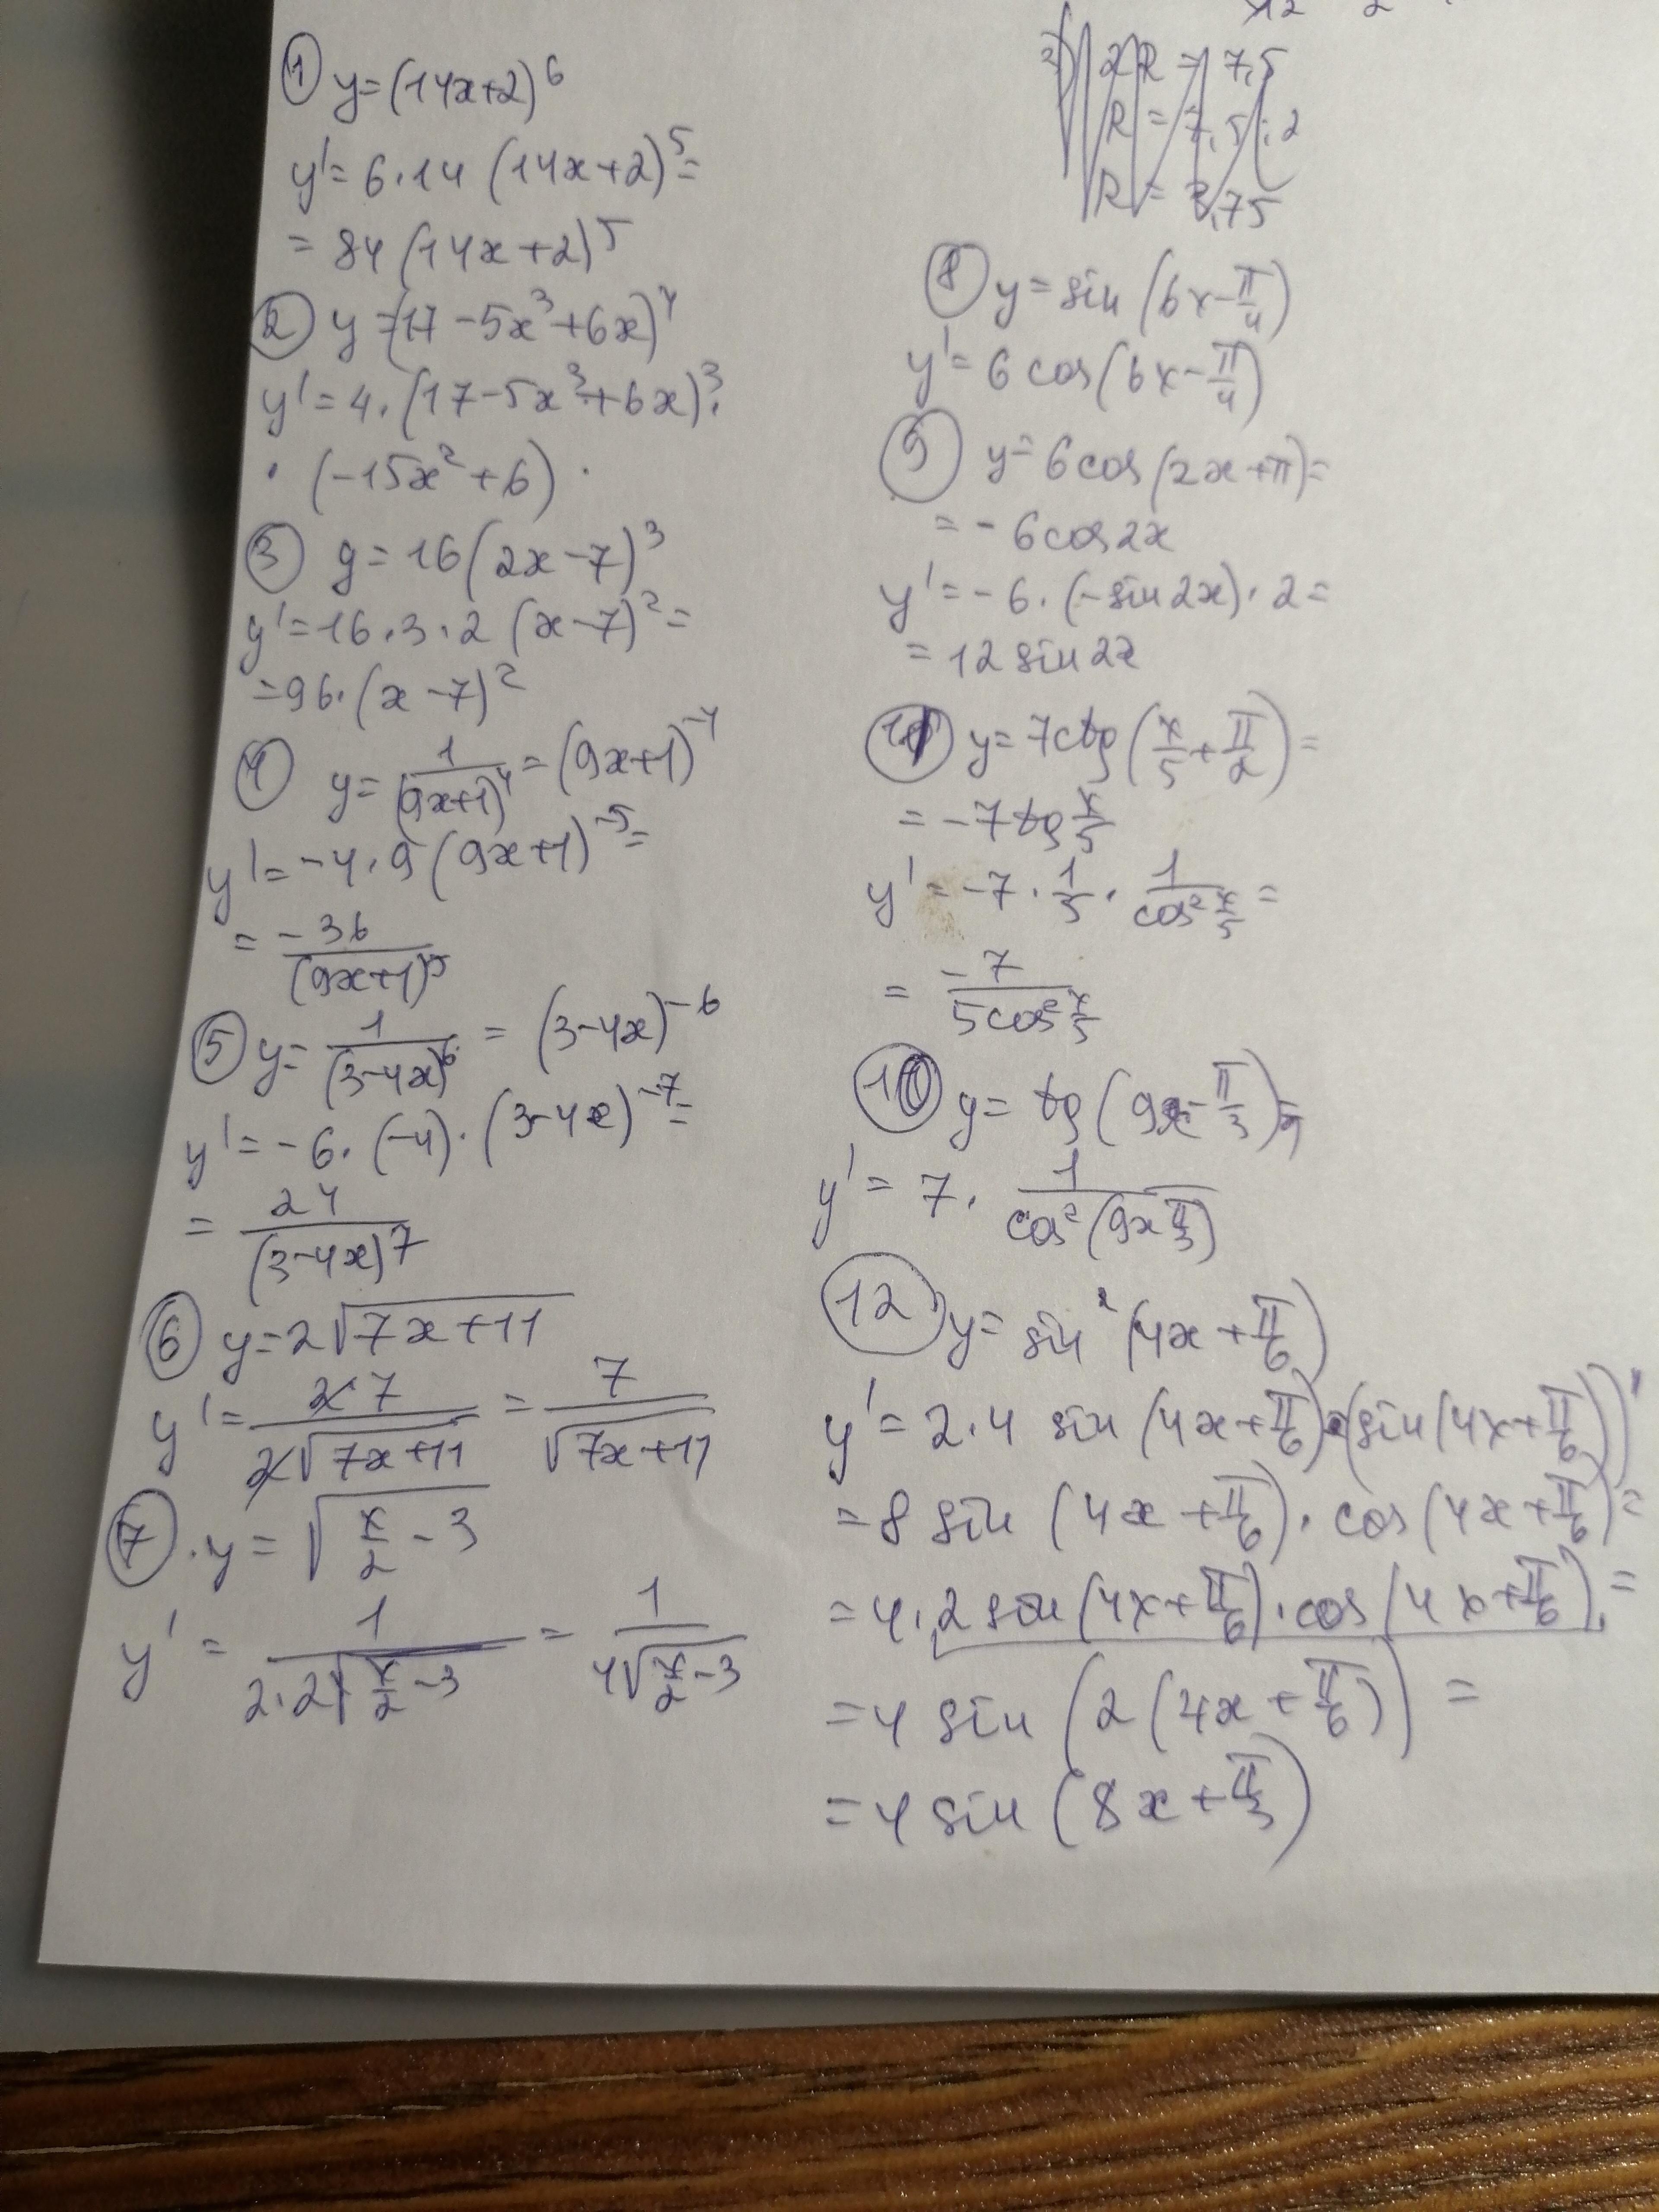 ① y=(14x+2)^6
y'=6·14 (14x+2)^5=
= 84(14x+2)^5
② y=(17-5x^3+6x)^4
y'=4·(17-5x^3+6x)^3·
·(-15x^2+6)
③ y=16(2x-7)^3
y'=16·3·2 (x-7)^2=
=96·(x-7)^2
④ y=1/(9x+1)^4=(9x+1)^-4
y'=-4·9(9x+1)^-5=
= -36/(9x+1)^5
⑤ y=1/(3-4x)^6=(3-4x)^-6
y'=-6·(-4)·(3-4x)^-7=
= 24/(3-4x)^7
⑥ y=2√(7x+11)
y'=2·7/(2√(7x+11))=7/√(7x+11)
⑦ ·y=√(x/2-3)
y'=1/(2·2√(x/2-3))=1/(4√(x/2-3))
2R=7,5
R=7,5:2
R=3,75
⑧ y=sin(6x-π/4)
y'=6cos(6x-π/4)
⑨ y=6cos(2x+π)=
=-6cos2x
y'=-6·(-sin2x)·2=
=12sin2x
⑪ y=7ctg(x/5+π/2)=
=-7tg x/5
y'=-7·1/5·1/(cos^2 x/5)=
= -7/(5cos^2 x/5)
⑩ y=tg(9x-π/3)=
y'=7·1/(cos^2(9x π/3))
⑫ y=sin^2(4x+π/6)
y'=2·4 sin(4x+π/6)·(sin(4x+π/6))'
=8 sin(4x+π/6)·cos(4x+π/6)=
=4·2sin(4x+π/6)·cos(4x+π/6)=
=4 sin(2(4x+π/6))=
=4 sin(8x+π/3)